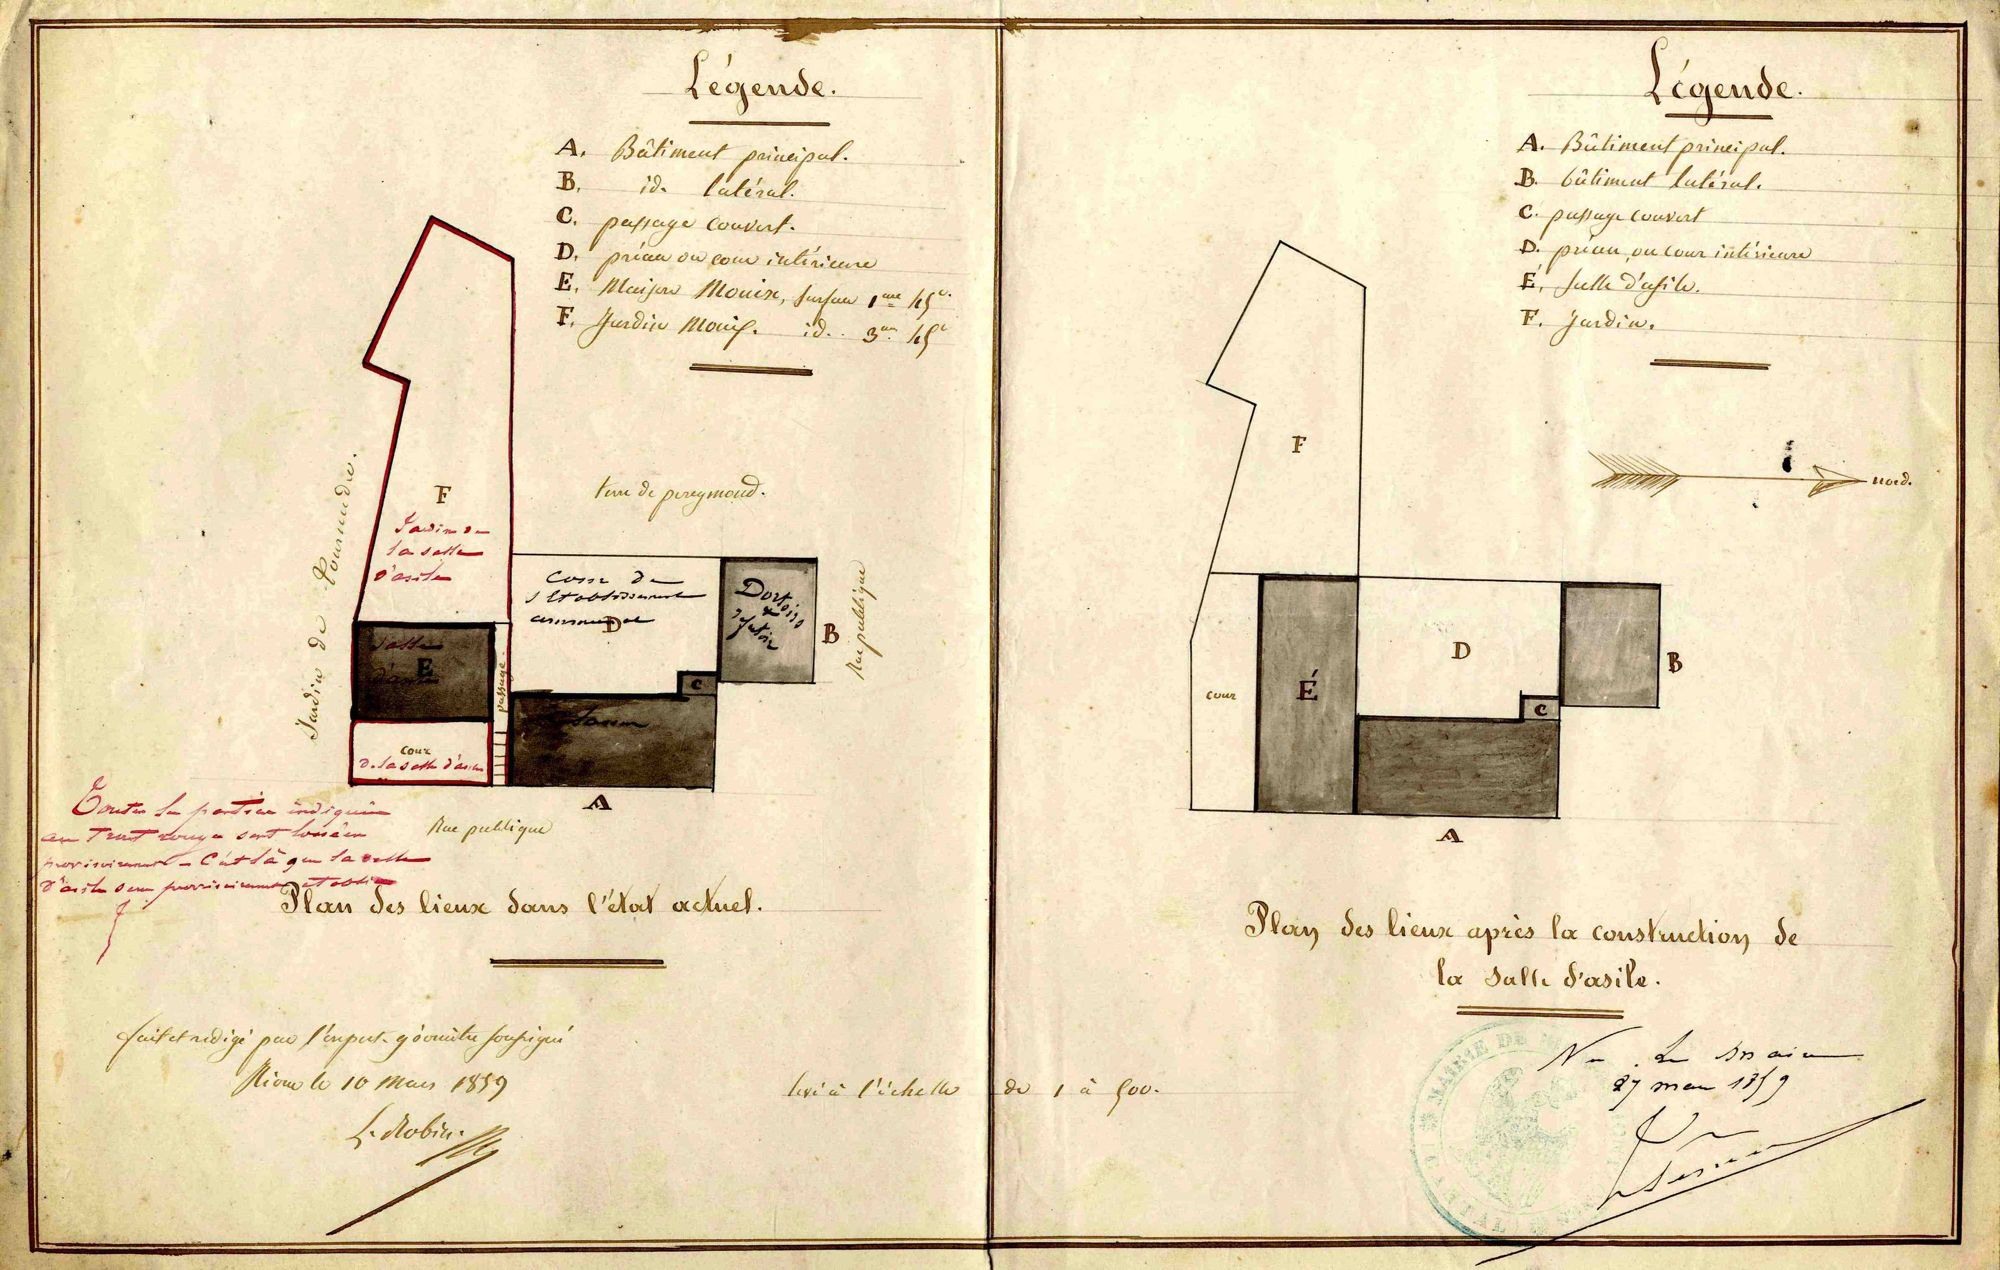 Légende.
A. Bâtiment principal.
B. id. latéral.
C. passage couvert.
D. préau ou cour intérieure
E. Maison Mouix, surface 1 are 45 c.
F. Jardin Mouix. id. 3 ares 45 c
Jardin de
F
Jardin de
la salle
d'asile
terre de pereymond.
Cour de
l'Etablissement
communal
D
Dortoirs
&
B
Rue publique
Salle
d'asile
E
passage
C
cour
de la salle d'asile
A
Rue publique
Toutes les parties indiquées
au trait rouge sont louées
provisoirement - C'est là que la salle
d'asile sera provisoirement établie
Plan des lieux dans l'état actuel.
fait et rédigé par l'expert-géomètre soussigné
Riom le 10 Mars 1859
L. Robin.
levé à l'échelle de 1 à 500.
Légende.
A. Bâtiment principal.
B. bâtiment latéral.
C. passage couvert
D. préau, ou cour intérieure
É. salle d'asile.
F. Jardin.
nord.
F
D
B
cour
É
C
A
Plan des lieux après la construction de
la salle d'asile.
MAIRIE DE
Vu. Le Maire
27 mars 1859